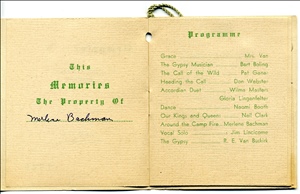 This
Memories
The Property Of
Merlene Bachman
Programme
Grace Mrs. Van
The Gypsy Musician Bart Boling
The Call of the Wild Pat
Heeding the Call Don Webster
Accordian Duet Wilma
Gloria
Dance Naomi Booth
Our Kings and Queens Nell Clark
Around the Camp Fire Merlene Bachman
Vocal Solo Jim
The Gypsy R. E. Van Buskirk